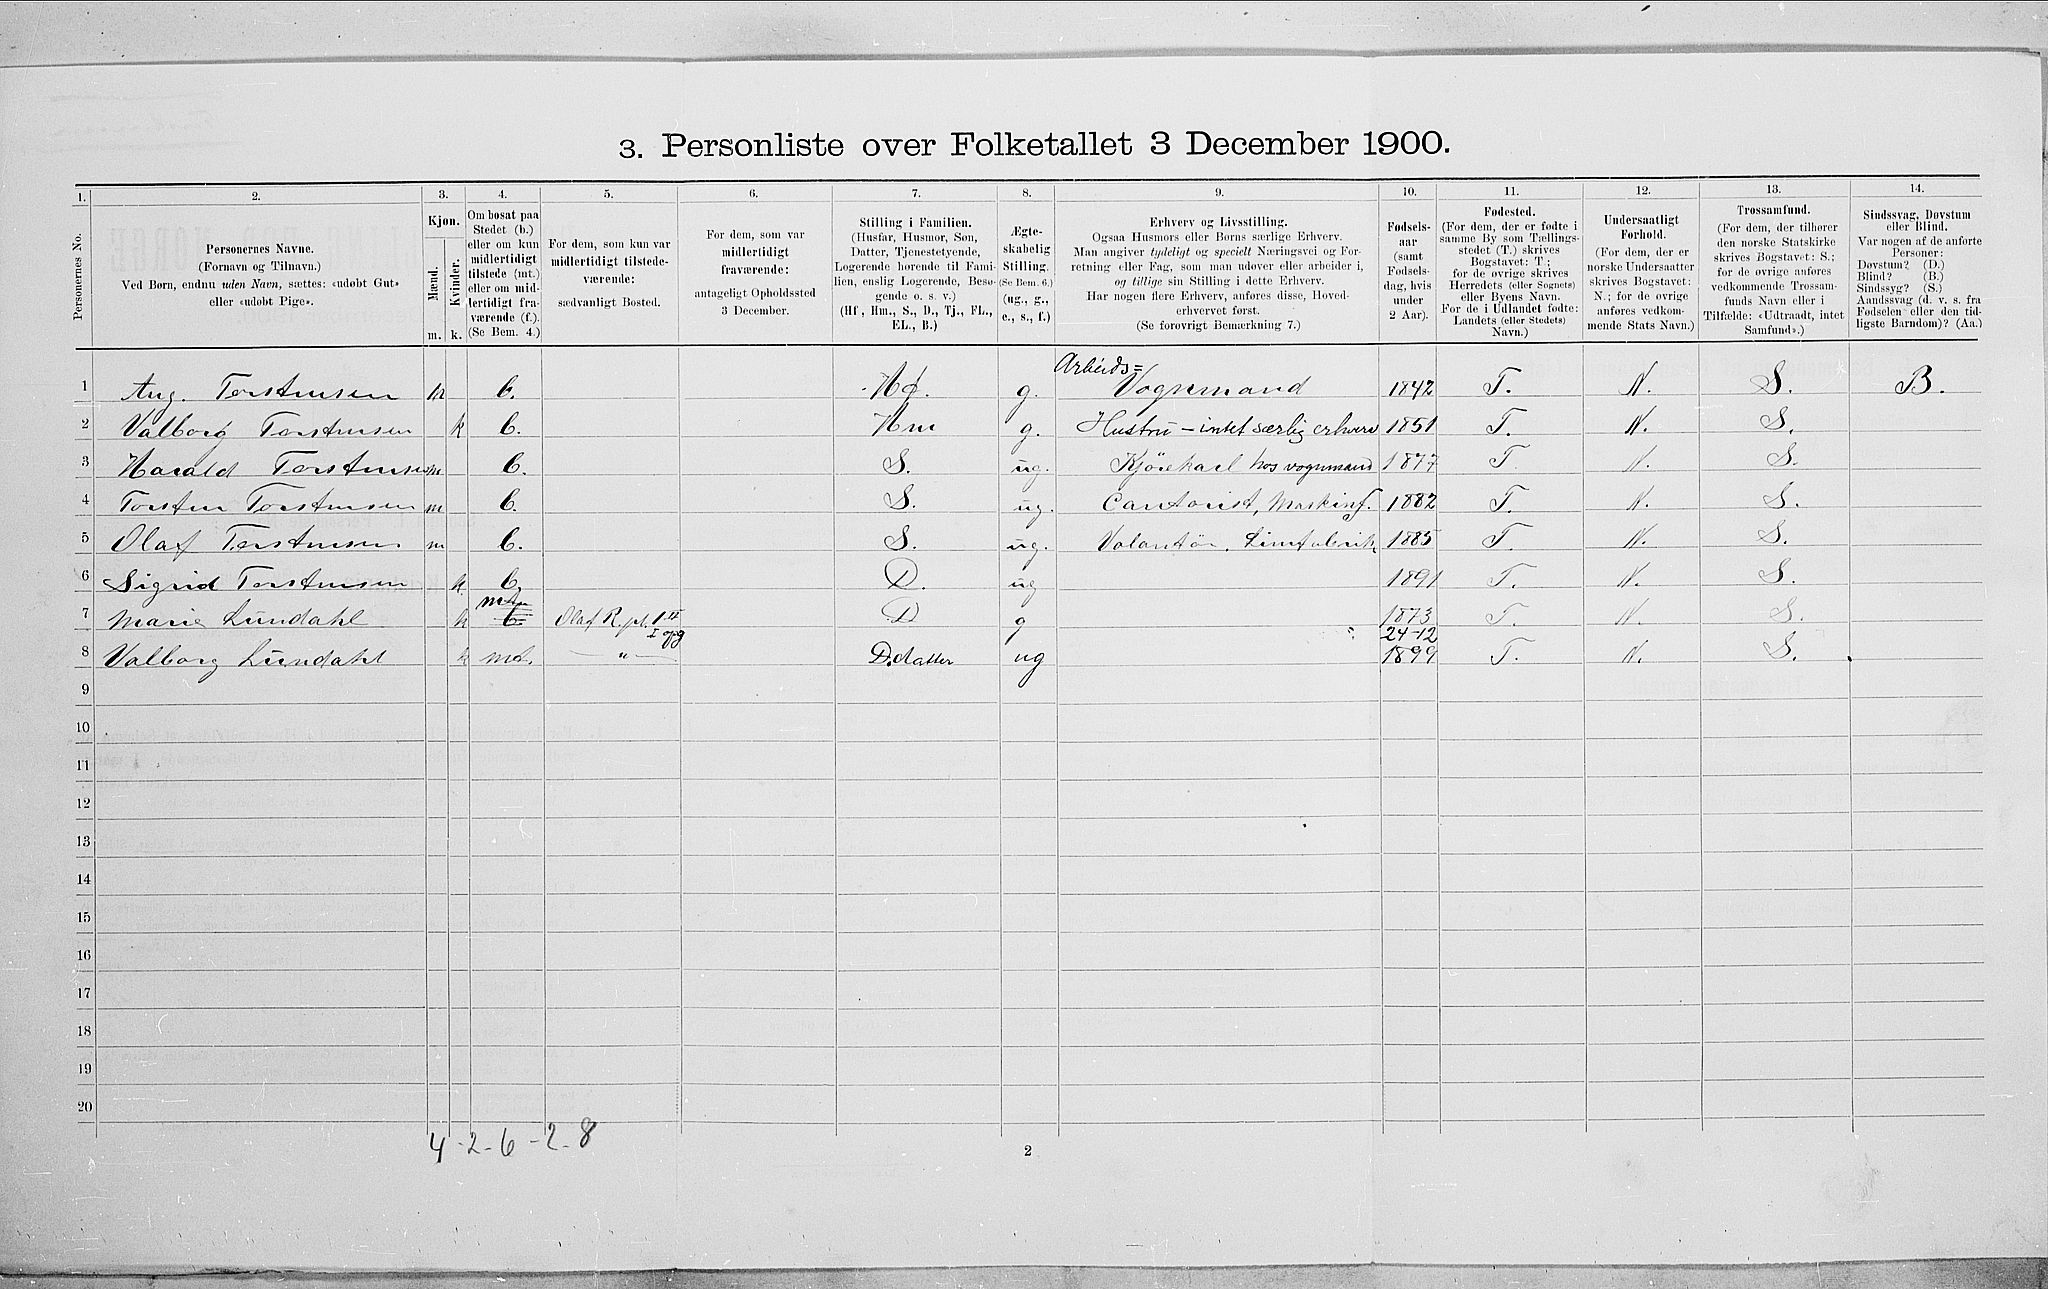 3. Personliste over Folketallet 3 December 1900.
1. 2. 3. 4. 5. 6. 7. 8. 9. 10. 11. 12. 13. 14.
Personernes No.
Personernes Navne.
(Fornavn og Tilnavn.)
Ved Børn, endnu uden Navn, sættes: «udøbt Gut»
eller «udøbt Pige».
Kjøn.
Mænd.
Kvinder.
m. k.
Om bosat paa
Stedet (b.)
eller om kun
midlertidigt
tilstede (mt.)
eller om mid-
lertidigt fra-
værende (f.).
(Se Bem. 4.)
For dem, som kun var
midlertidigt tilstede-
værende:
sædvanligt Bosted.
For dem, som var
midlertidigt
fraværende:
antageligt Opholdssted
3 December.
Stilling i Familien.
(Husfar, Husmor, Søn,
Datter, Tjenestetyende,
Logerende hørende til Fami-
lien, enslig Logerende, Besø-
gende o. s. v.)
(Hf, Hm., S., D., Tj., FL.,
EL., B.)
Ægte-
skabelig
Stilling.
(Se Bem. 6.)
(ug., g.,
e., s., f.)
Erhverv og Livsstilling.
Ogsaa Husmors eller Børns særlige Erhverv.
Man angiver tydeligt og specielt Næringsvei og For-
retning eller Fag, som man udøver eller arbeider i,
og tillige sin Stilling i dette Erhverv.
Har nogen flere Erhverv, anføres disse, Hoved-
erhvervet først.
(Se forøvrigt Bemærkning 7.)
Fødsels-
aar
(samt
Fødsels-
dag, hvis
under
2 Aar).
Fødested.
(For dem, der er fødte i
samme By som Tællings-
stedet (T.) skrives
Bogstavet: T.;
for de øvrige skrives
Herredets (eller Sognets)
eller Byens Navn.
For de i Udlandet fødte:
Landets (eller Stedets)
Navn.)
Undersaatligt
Forhold.
(For dem, der er
norske Undersaatter
skrives Bogstavet:
N.; for de øvrige
anføres vedkom-
mende Stats Navn.)
Trossamfund.
(For dem, der tilhører
den norske Statskirke
skrives Bogstavet: S.;
for de øvrige anføres
vedkommende Trossam-
funds Navn eller i
Tilfælde: «Udtraadt, intet
Samfund».)
Sindssvag, Døvstum
eller Blind.
Var nogen af de anførte
Personer:
Døvstum? (D.)
Blind? (B.)
Sindssyg? (S.)
Aandssvag (d. v. s. fra
Fødselen eller den tid-
ligste Barndom)? (Aa.)
Arbeids=
1 Aug. Torstensen m b. Hf. g. Vognmand 1842 T. N. S. B.
2 Valborg Torstensen k b. Hm g. Hustru – intet særlig erhverv 1851 T. N. S.
3 Harald Torstensen m b. S. ug. Kjørekarl hos vognmand 1877 T N. S.
4 Torsten Torstensen m b. S. ug. Contorist, Maskinf. 1882 T. N. S.
5 Olaf Torstensen m b. S. ug. Volantør, Limfabrik 1885 T. N. S.
6 Sigrid Torstensen k b. D. ug 1891 T. N. S.
mt
7 Marie Lundahl k b. Olaf R. pl. 1 II D g 1873 T. N. S.
I opg 24-12
8 Valborg Lundahl k mt. — " — D. datter ug 1899 T. N. S.
9
10
11
12
13
14
15
16
17
18
19
20
4 - 2 - 6 - 2 - 8
2